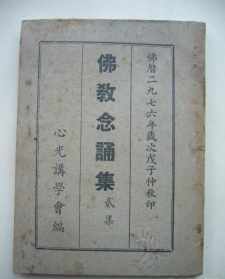 佛曆二九七六年歲次戊子仲秋印
佛教念誦集 貳集
心光講學會編